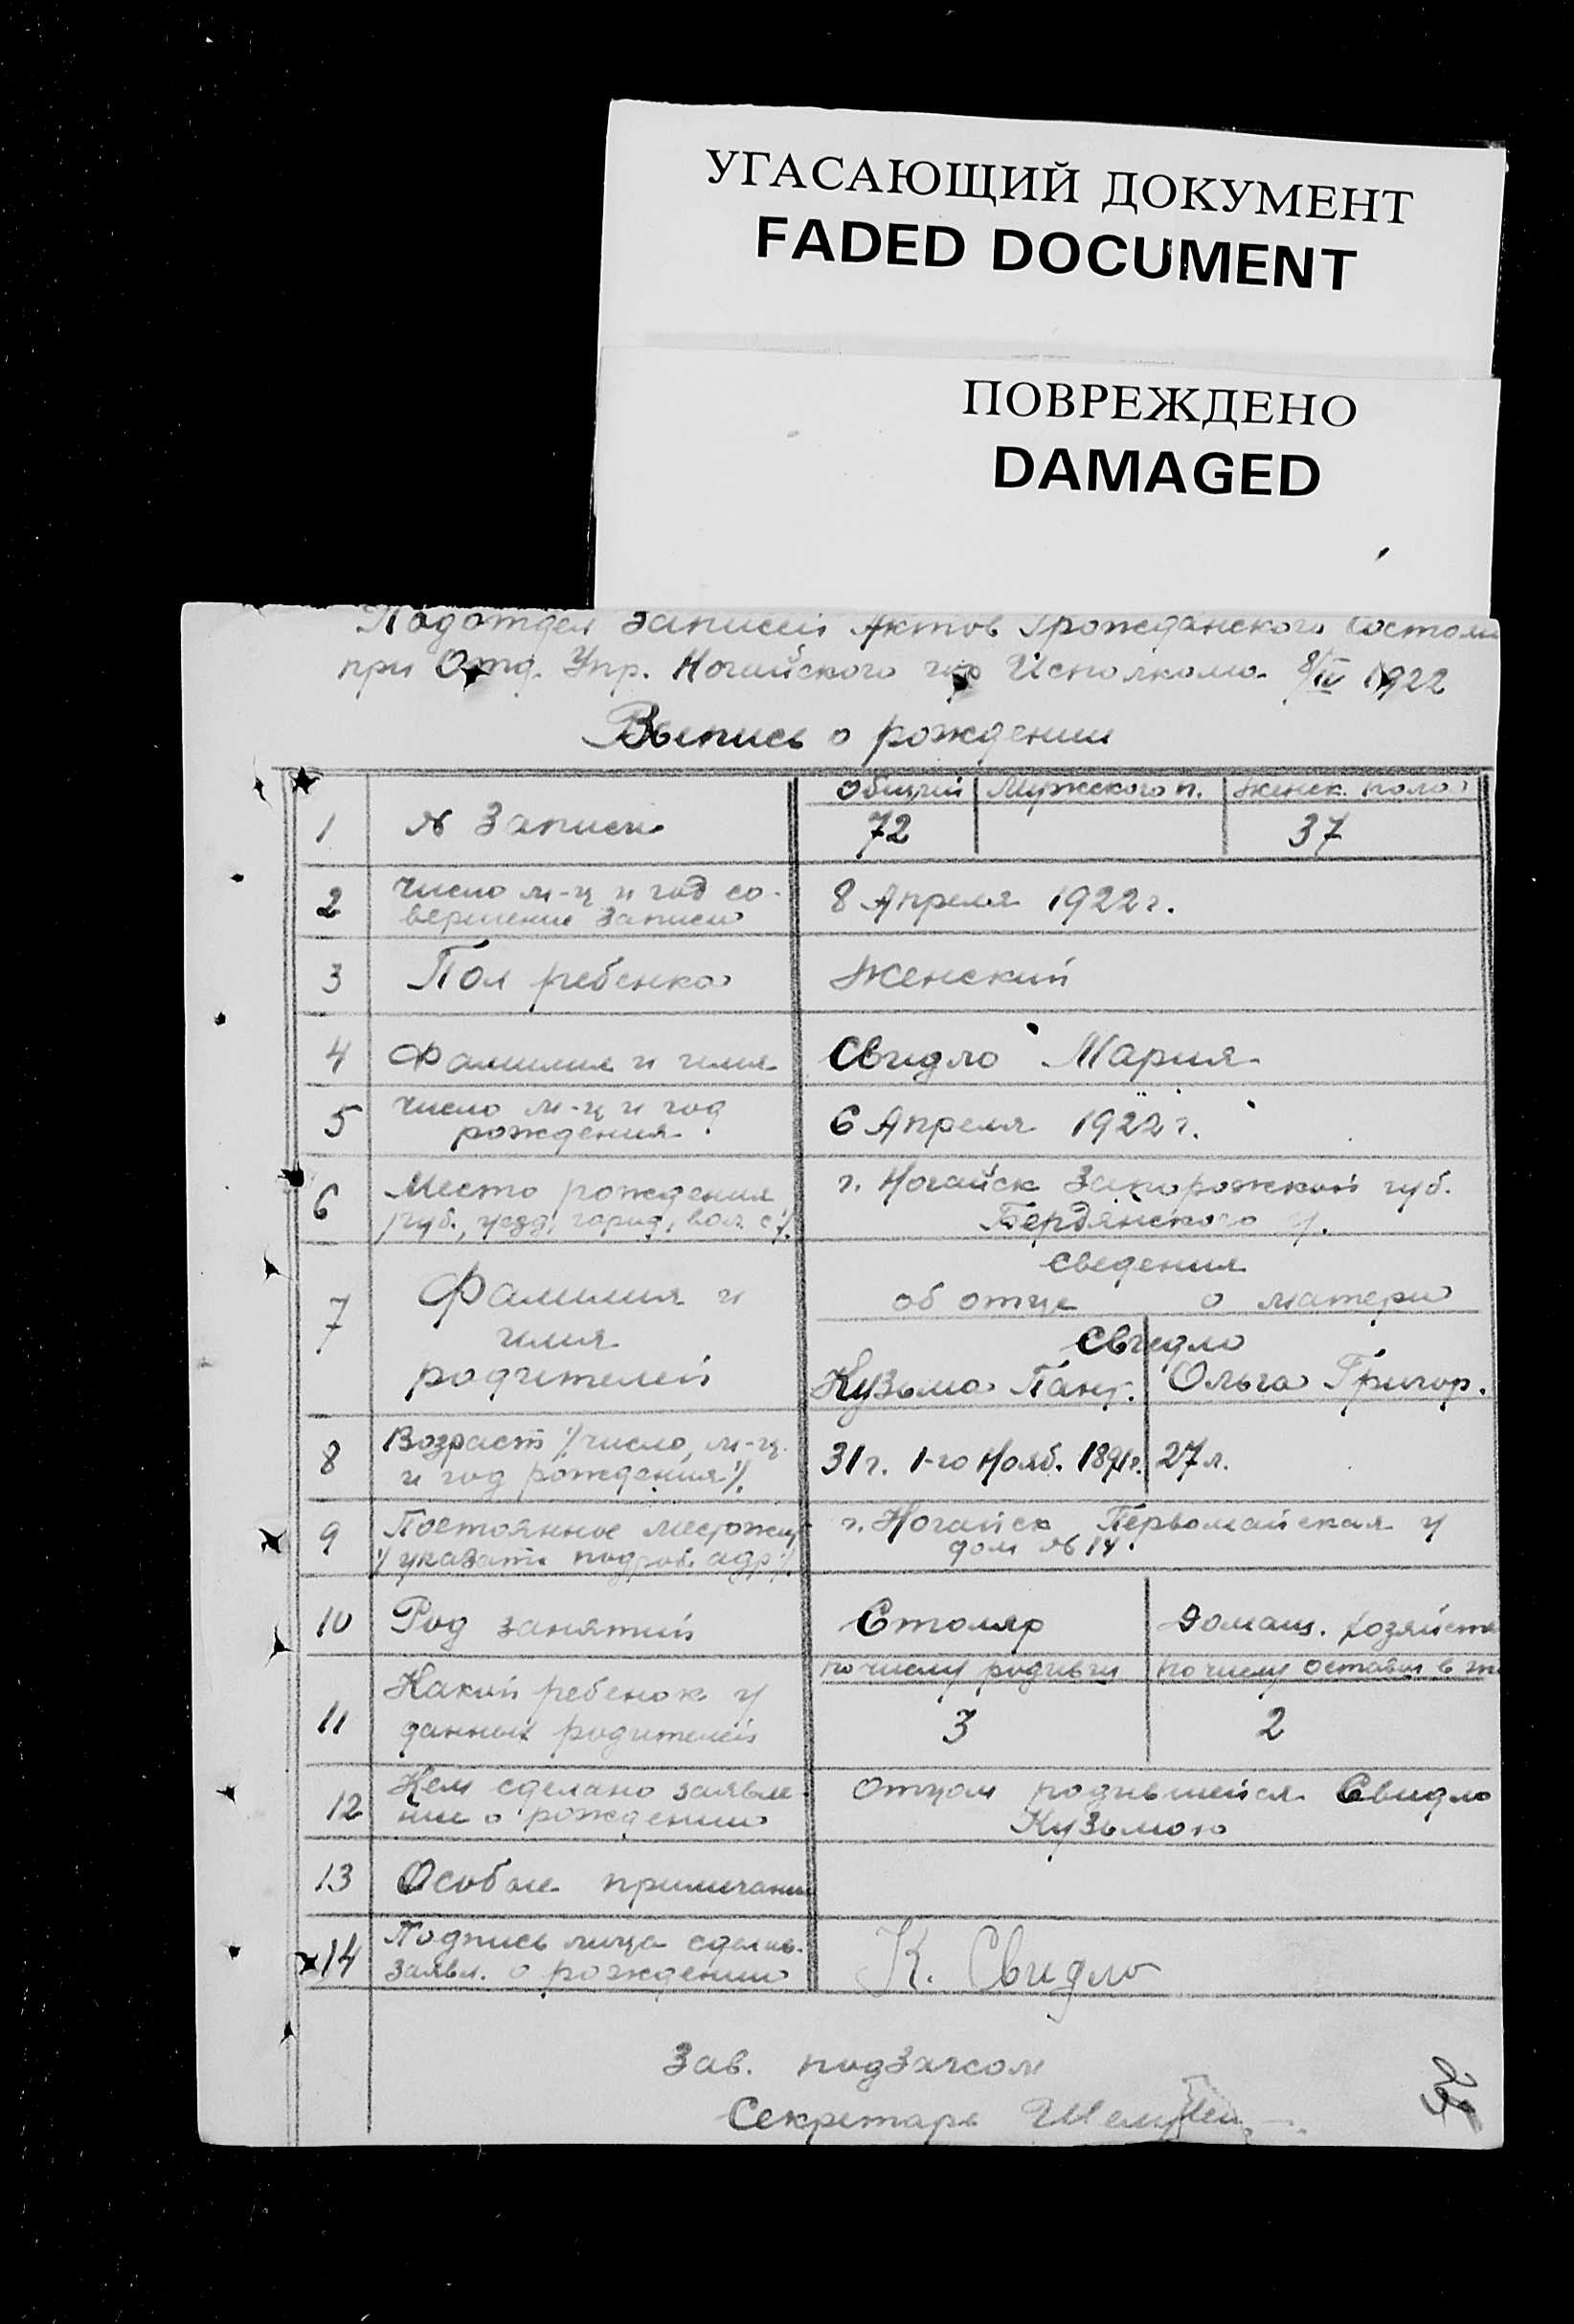 УГАСАЮЩИЙ ДОКУМЕНТ
FADED DOCUMENT
ПОВРЕЖДЕНО
DAMAGED
Подотдел Записей Актов Гражданского Состоян
при Отд. Упр. Ногайского гор Исполкома 8/IV 1922
Выпись о рождении
Общий Мужского п. Женск. пола
1 № Записи 72 37
2 Число м-ц и год со-
вершения записи 8 Апреля 1922 г.
3 Пол ребенка Женский
4 Фамилия и имя Свидло Мария
5 Число м-ц и год
рождения 6 Апреля 1922 г.
6 Место рождения г. Ногайск Запорожской губ.
/губ., уезд, город, вол. с/. Бердянского у.
Сведения
7 Фамилия и об отце о матери
имя Свидло
родителей Кузьма Пант. Ольга Григор.
8 Возраст /число, м-ц
и год рождения/. 31 г. 1-го Нояб. 1891 г. 27 л.
9 Постоянное местожит г. Ногайск Первомайская у
/указать подроб. адр/. дом № 14
10 Род занятий Столяр Домаш. хозяйств
по числу родивши по числу оставш в жи
11 Какой ребенок у
данных родителей 3 2
12 Кем сделано заявле-
ние о рождении Отцом родившейся Свидло
Кузьмою
13 Особые примечани
14 Подпись лица сделав.
заявл. о рождении К. Свидло
Зав. подзагсом
Секретарь